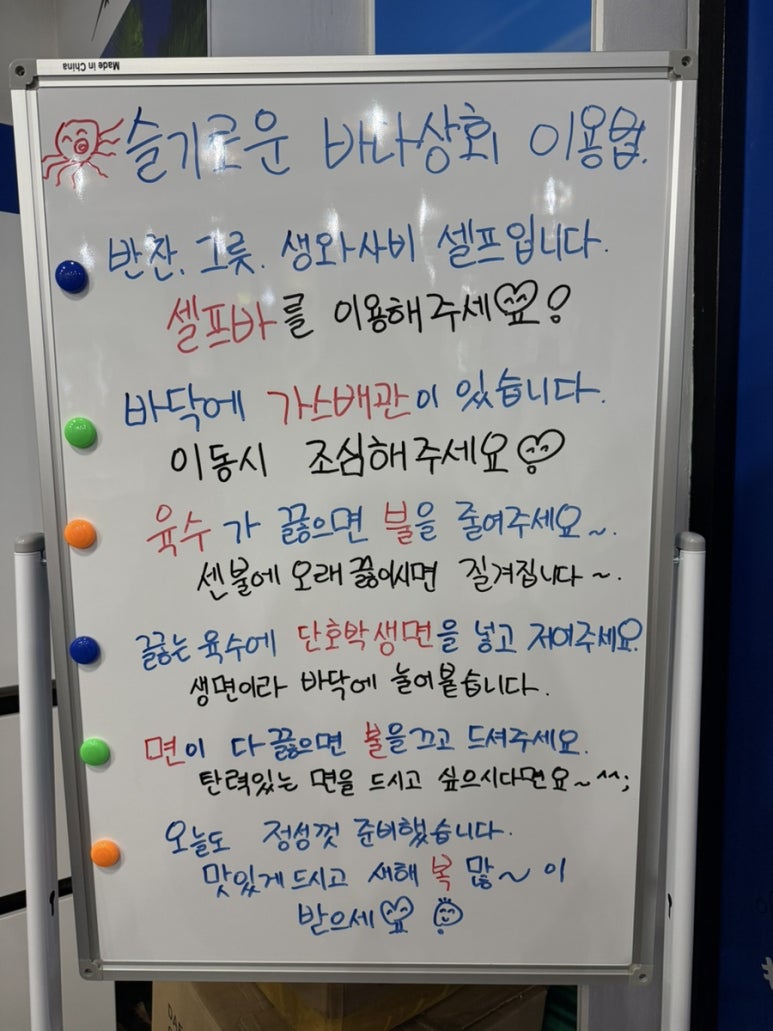 Made in China
슬기로운 바다상회 이용법.
반찬. 그릇. 생와사비 셀프입니다.
셀프바를 이용해주세요!
바닥에 가스배관이 있습니다.
이동시 조심해주세요
육수가 끓으면 불을 줄여주세요~.
센불에 오래 끓이시면 질겨집니다~.
끓는 육수에 단호박생면을 넣고 저어주세요.
생면이라 바닥에 눌어붙습니다.
면이 다 끓으면 불을 끄고 드셔주세요.
탄력있는 면을 드시고 싶으시다면요~^^;
오늘도 정성껏 준비했습니다.
맛있게 드시고 새해 복 많~이
받으세요